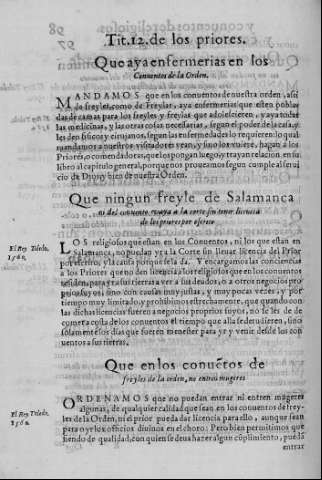 Tit. 12. de los priores.
Que aya enfermerias en los
Conuentos de la Orden.
MANDAMOS que en los conuentos de nuestra orden, assi
de freyles, como de Freylas, aya enfermerias que esten pobla
das de camas para los freyles y freylas que adolescieren, y aya todas
las medicinas, y las otras cosas necessarias, segun el poder de la casa, y
les den fisicos y cirujanos, segun las enfermedades lo requieren: lo qual
mandamos a nuestros visitadores vean, y si no los vuiere, hagan a los
Priores, o comendadores, que los pongan luego y traygan relacion en su
libro al capitulo general, porque nos proueamos segun cumple al serui
cio de Dios y bien de nuestra Orden.
Que ningun freyle de Salamanca
ni del conuento vaya a la corte sin tener licencia
de los priores por escrito
El Rey Toledo.
1560.
LOS religiosos que estan en los Conuentos, ni los que estan en
Salamanca, no puedan yr a la Corte sin lleuar licencia del Prior
por escrito, y la causa porque se la da. Y encargamos las conciencias
a los Priores que no den licencia a los religiosos que en los conuentos
residen, para yr a sus tierras a ver a sus deudos, o a otros negocios pro
prios suyos, sino con causas muy justas, y muy pocas vezes, y por
tiempo muy limitado, y prohibimos estrechamente, que quando con
las dichas licencias fueren a negocios proprios suyos, no les de de
comer a costa de los conuentos el tiempo que alla se detuuieren, sino
solamente los dias que fueren menester para yr y venir desde los con
uentos a sus tierras.
Que en los conuētos de
freyles de la orden, no entren mugeres
El Rey Toledo.
1560.
ORDENAMOS que no puedan entrar ni entren mugeres
algunas, de qualquier calidad que sean en los conuentos de frey-
les de la Orden, ni el prior pueda dar licencia para ello, aunque sean
para oyr los officios diuinos en el choro: Pero bien permitimos que
siendo de qualidad, con quien se deua hazer algun cūplimiento, pueda
entrar